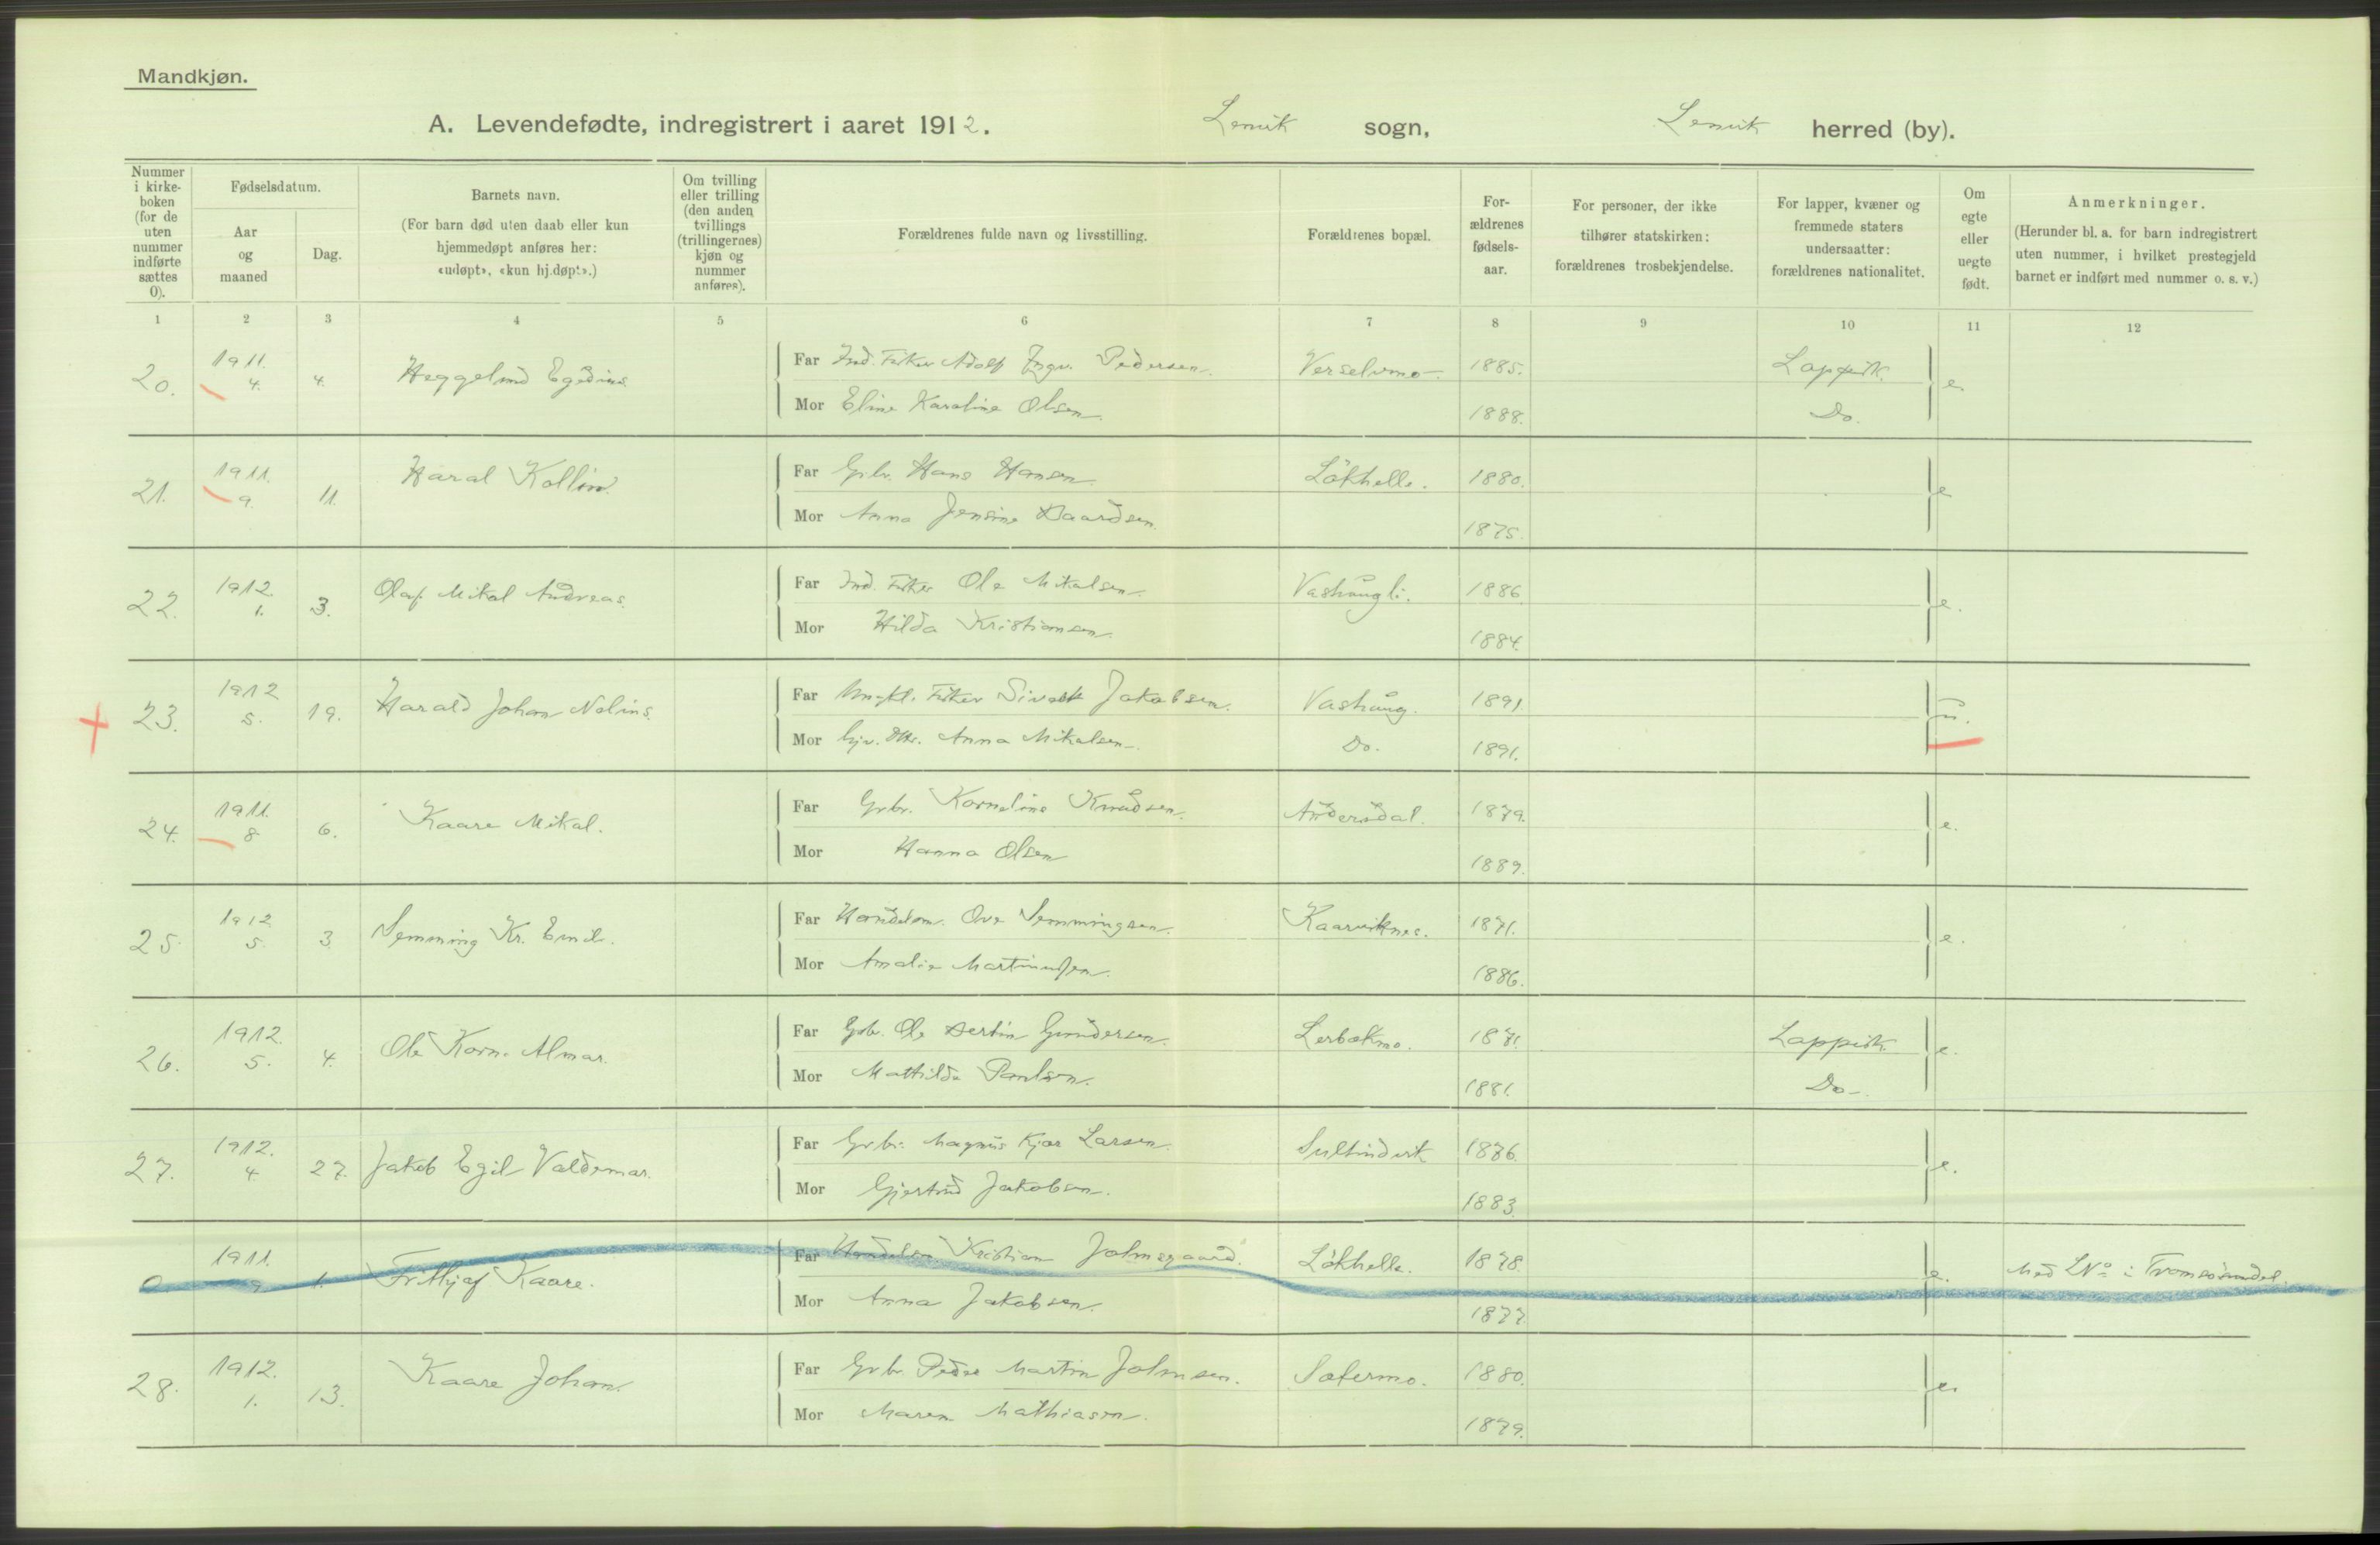 Mandkjøn.
A. Levendefødte, indregistrert i aaret 1912. Lenvik sogn, Lenvik herred (by).
Nummer i kirke-boken (for de uten nummer indførte sættes 0).
Fødselsdatum.
Aar og maaned
Dag.
Barnets navn.
(For barn død uten daab eller kun hjemmedøpt anføres her: «udøpt», «kun hj.døpt».)
Om tvilling eller trilling (den anden tvillings (trillingernes) kjøn og nummer anføres).
Forældrenes fulde navn og livsstilling.
Forældrenes bopæl.
For-ældrenes fødsels-aar.
For personer, der ikke tilhører statskirken: forældrenes trosbekjendelse.
For lapper, kvæner og fremmede staters undersaatter: forældrenes nationalitet.
Om egte eller uegte født.
Anmerkninger.
(Herunder bl. a. for barn indregistrert uten nummer, i hvilket prestegjeld barnet er indført med nummer o. s. v.)
1 2 3 4 5 6 7 8 9 10 11 12
20. 1911. 4. 4. Heggelund Egedius Far Ind. Fisker Adolf Ingv. Pedersen. Verselvmo 1885. Lappisk. e.
Mor Eline Karoline Olsen. 1888. Do.
21. 1911. 9. 11. Haral Kollin. Far Grbr. Hans Hansen. Lökhelle. 1880. e
Mor Anna Jensine Daardsen. 1875.
22. 1912. 1. 3. Olaf Mikal Andreas. Far Ind. Fisker Ole Mikalsen. Vashaugli. 1886 e.
Mor Hilda Kristiansen. 1884.
23. 1912 5. 19. Harald Johan Nelius. Far Ungkl. Fisker Sivert Jakobsen. Vashaug. 1891 u.
Mor hjv. Dtr. Anna Mikalsen. Do. 1891.
24. 1911. 8 6. Kaare Mikal. Far Grbr. Kornelius Knudsen. Andersdal. 1879. e.
Mor Hanna Olsen 1889.
25. 1912 5. 3 Nemming Kr. Emil. Far Handelsm. Ove Nemmingsen. Kaarviknes. 1871. e.
Mor Amalie Martinussen. 1886.
26. 1912. 5. 4. Ole Korn. Almar. Far Gbr. Ole Bertin Gundersen. Lerbakmo. 1871. Lappisk e.
Mor Mathilde Paulsen. 1881. Do.
27. 1912. 4 27. Jakob Egil Valdemar. Far Grbr. Magnus Kjær Larsen. Sultindvik 1876. e.
Mor Gjertrud Jakobsen. 1883.
0 1911. 9 1. Frithjof Kaare. Far Handelsm Kristian Johnsgaard. Lökhelle. 1878. e. Med No i Tromsösundet.
Mor Anna Jakobsen. 1877.
28. 1912. 1. 13. Kaare Johan. Far Grbr Peder Martin Johnsen. Sætermo. 1880. e.
Mor Maren Mathiasen. 1879.